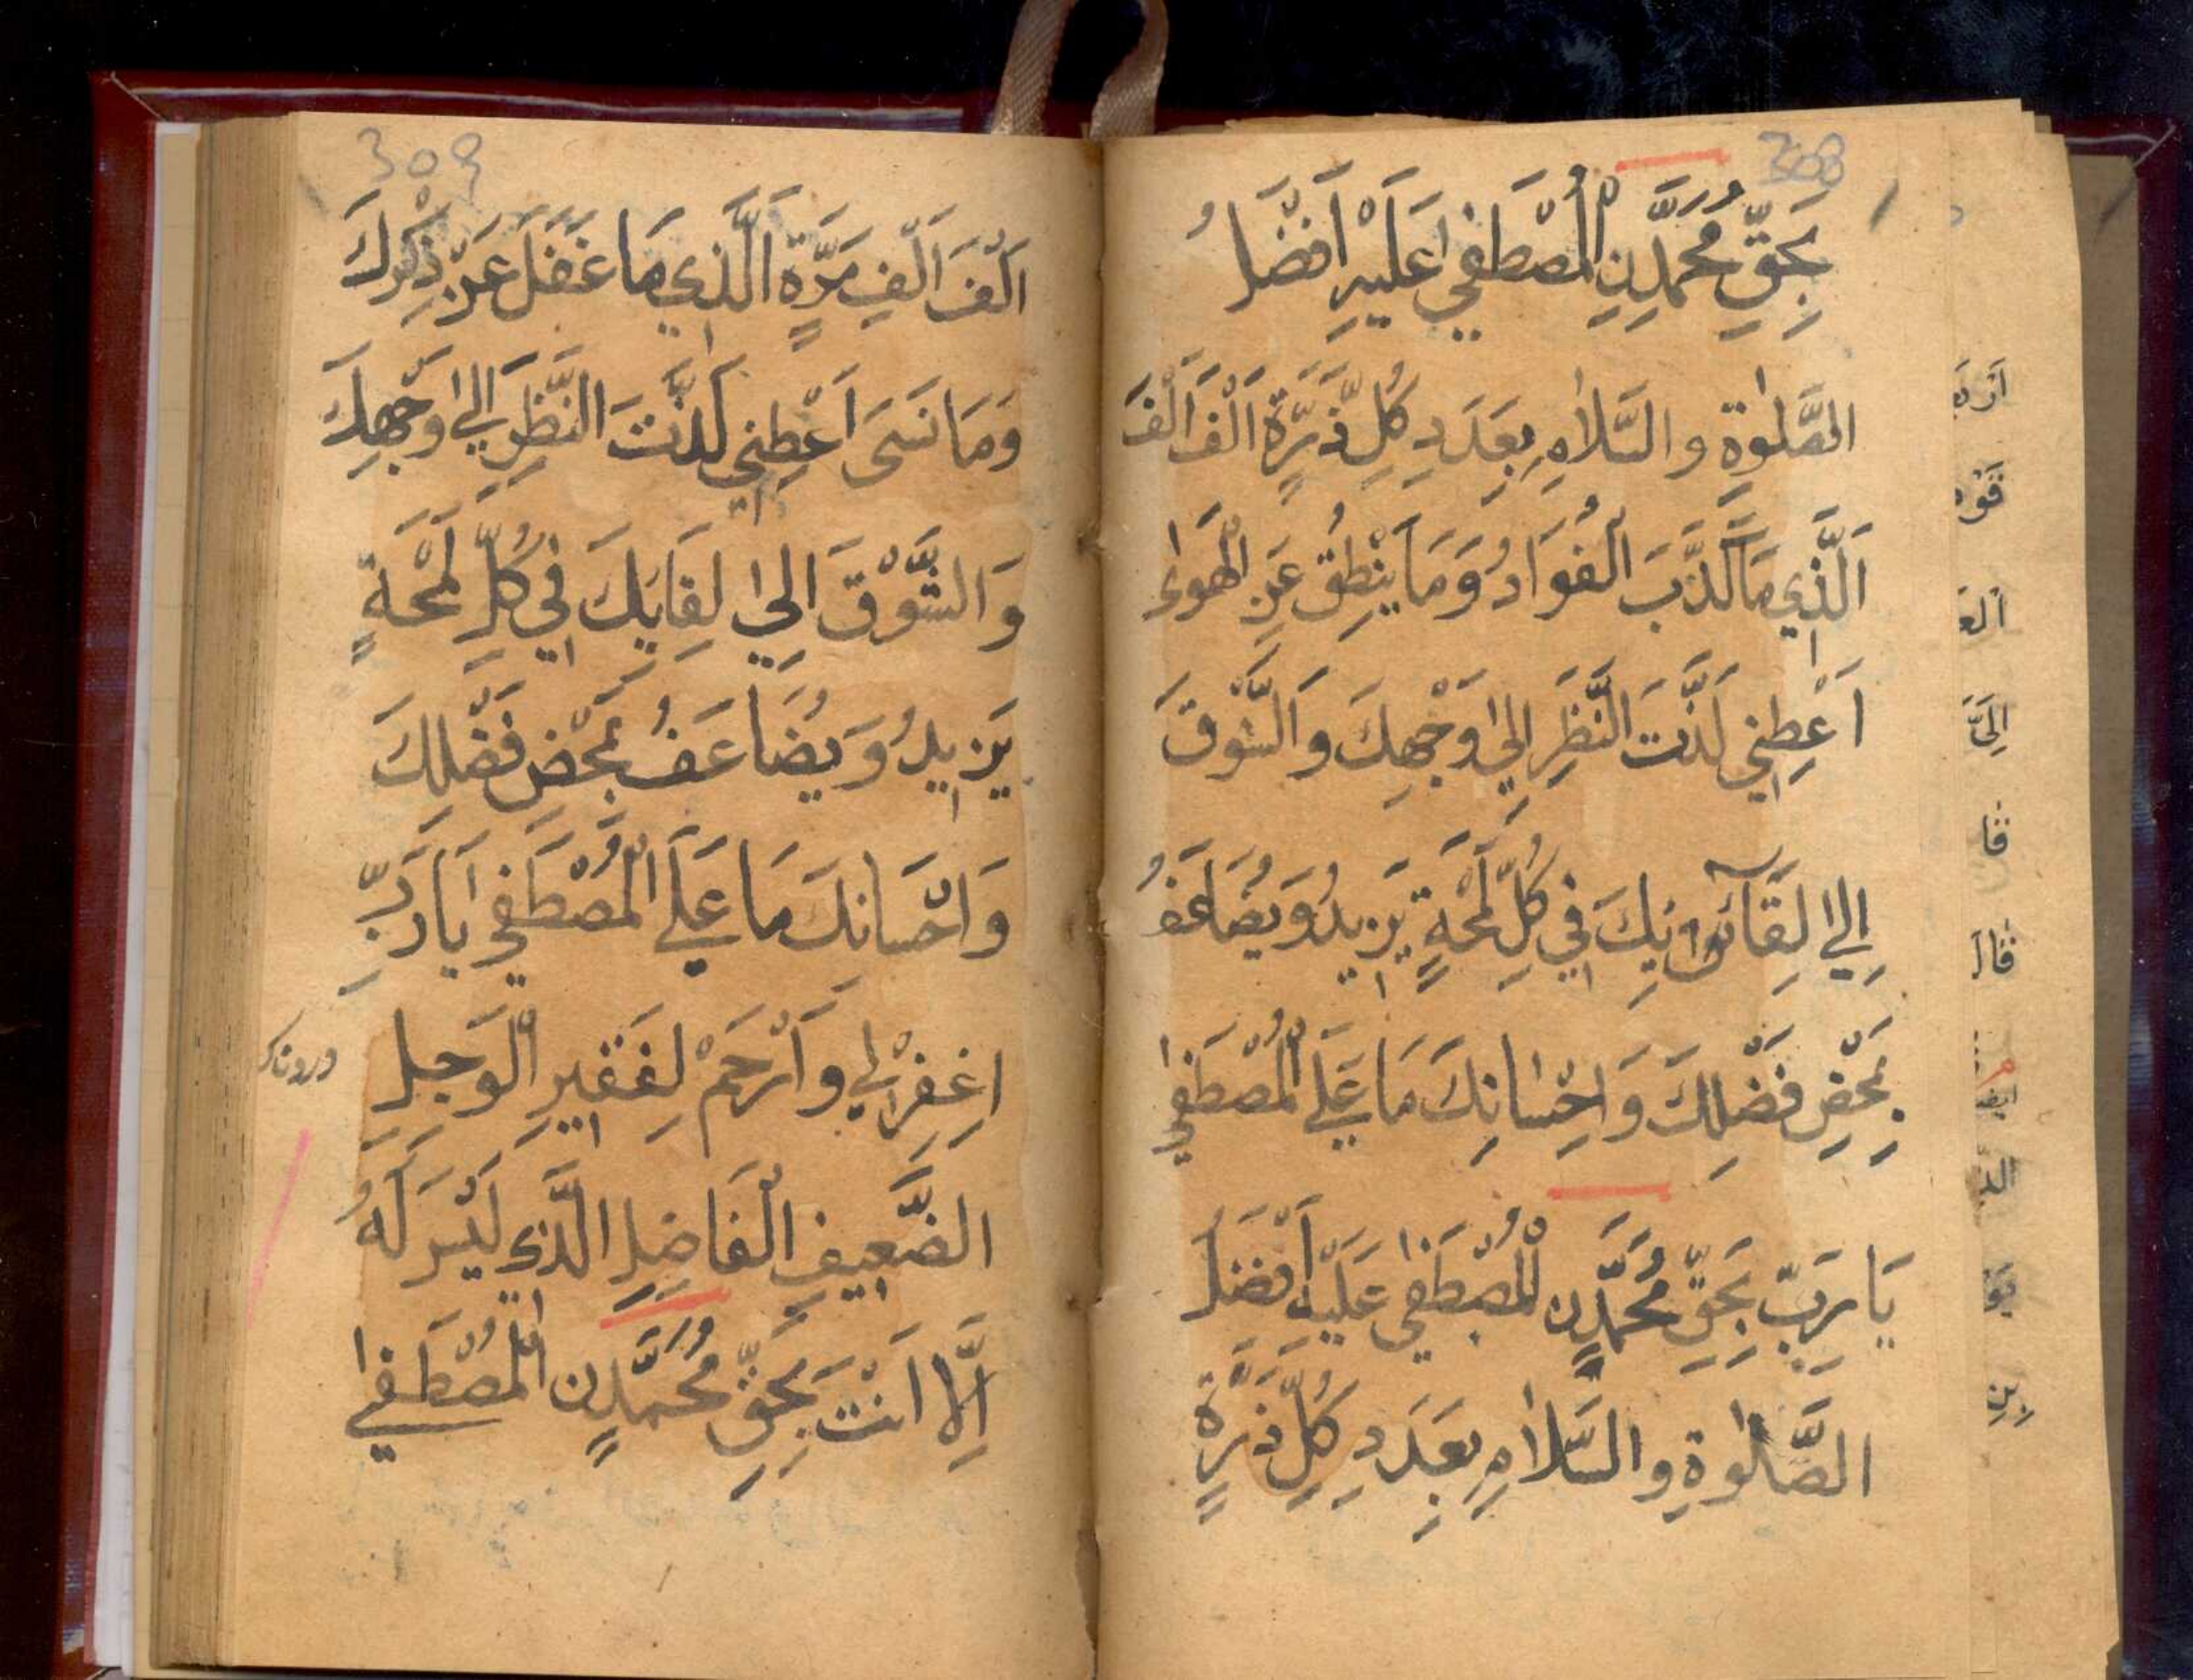 308
بِحَقِّ مُحَمَّدِنِ الْمُصْطَفٰي عَلَيْهِ اَفْضَلُ
الصَّلٰوةِ والسَّلَامِ بِعَدَدِ كُلِّ ذَرَّةٍ اَلْفَ اَلْفَ
اَلَّذِي مَا كَذَبَ الْفُوَادُ وَمَا يَنْطِقُ عَنِ الْهَوٰى
اَعْطِنِي لَذَّتَ النَّظَرِ اِلٰي وَجْهِكَ وَالشَّوْقَ
اِلٰي لِقَآئِكَ فِي كُلِّ لَمْحَةٍ يَزِيدُ وَيُضَاعَفُ
بِمَحْضِ فَضْلِكَ وَاِحْسَانِكَ مَا عَلَي الْمُصْطَفٰي
يَا رَبِّ بِحَقِّ مُحَمَّدٍنِ الْمُصْطَفٰي عَلَيْهِ اَفْضَلُ
الصَّلٰوةِ والسَّلَامِ بِعَدَدِ كُلِّ ذَرَّةٍ
اِلَيَّ
قا
قال
بِنِ
309
اَلْفَ اَلْفِ مَرَّةٍ اَلَّذِي مَا غَفَلَ عَنْ ذِكْرِكَ
وَمَا نَسَىَ اَعْطِنِي لَذَّتَ النَّظَرِ اِلٰي وَجْهِكَ
وَالشَّوْقَ اِلٰي لِقَايِكَ فِي كُلِّ لَمْحَةٍ
يَزِيدُ وَيُضَاعَفُ بِمَحْضِ فَضْلِكَ
وَاِحْسَانِكَ مَا عَلَي الْمُصْطَفٰي يَا رَبِّ
اِغْفِرْلِي وَاَرْحَمْ لِفَقِيرِ الْوَجِلِ
الضَّعِيفِ الْفَاضِلِ الَّذِي لَيْسَ لَهُ
اِلَّا اَنْتَ بِحَقِّ مُحَمَّدٍنِ الْمُصْطَفٰي